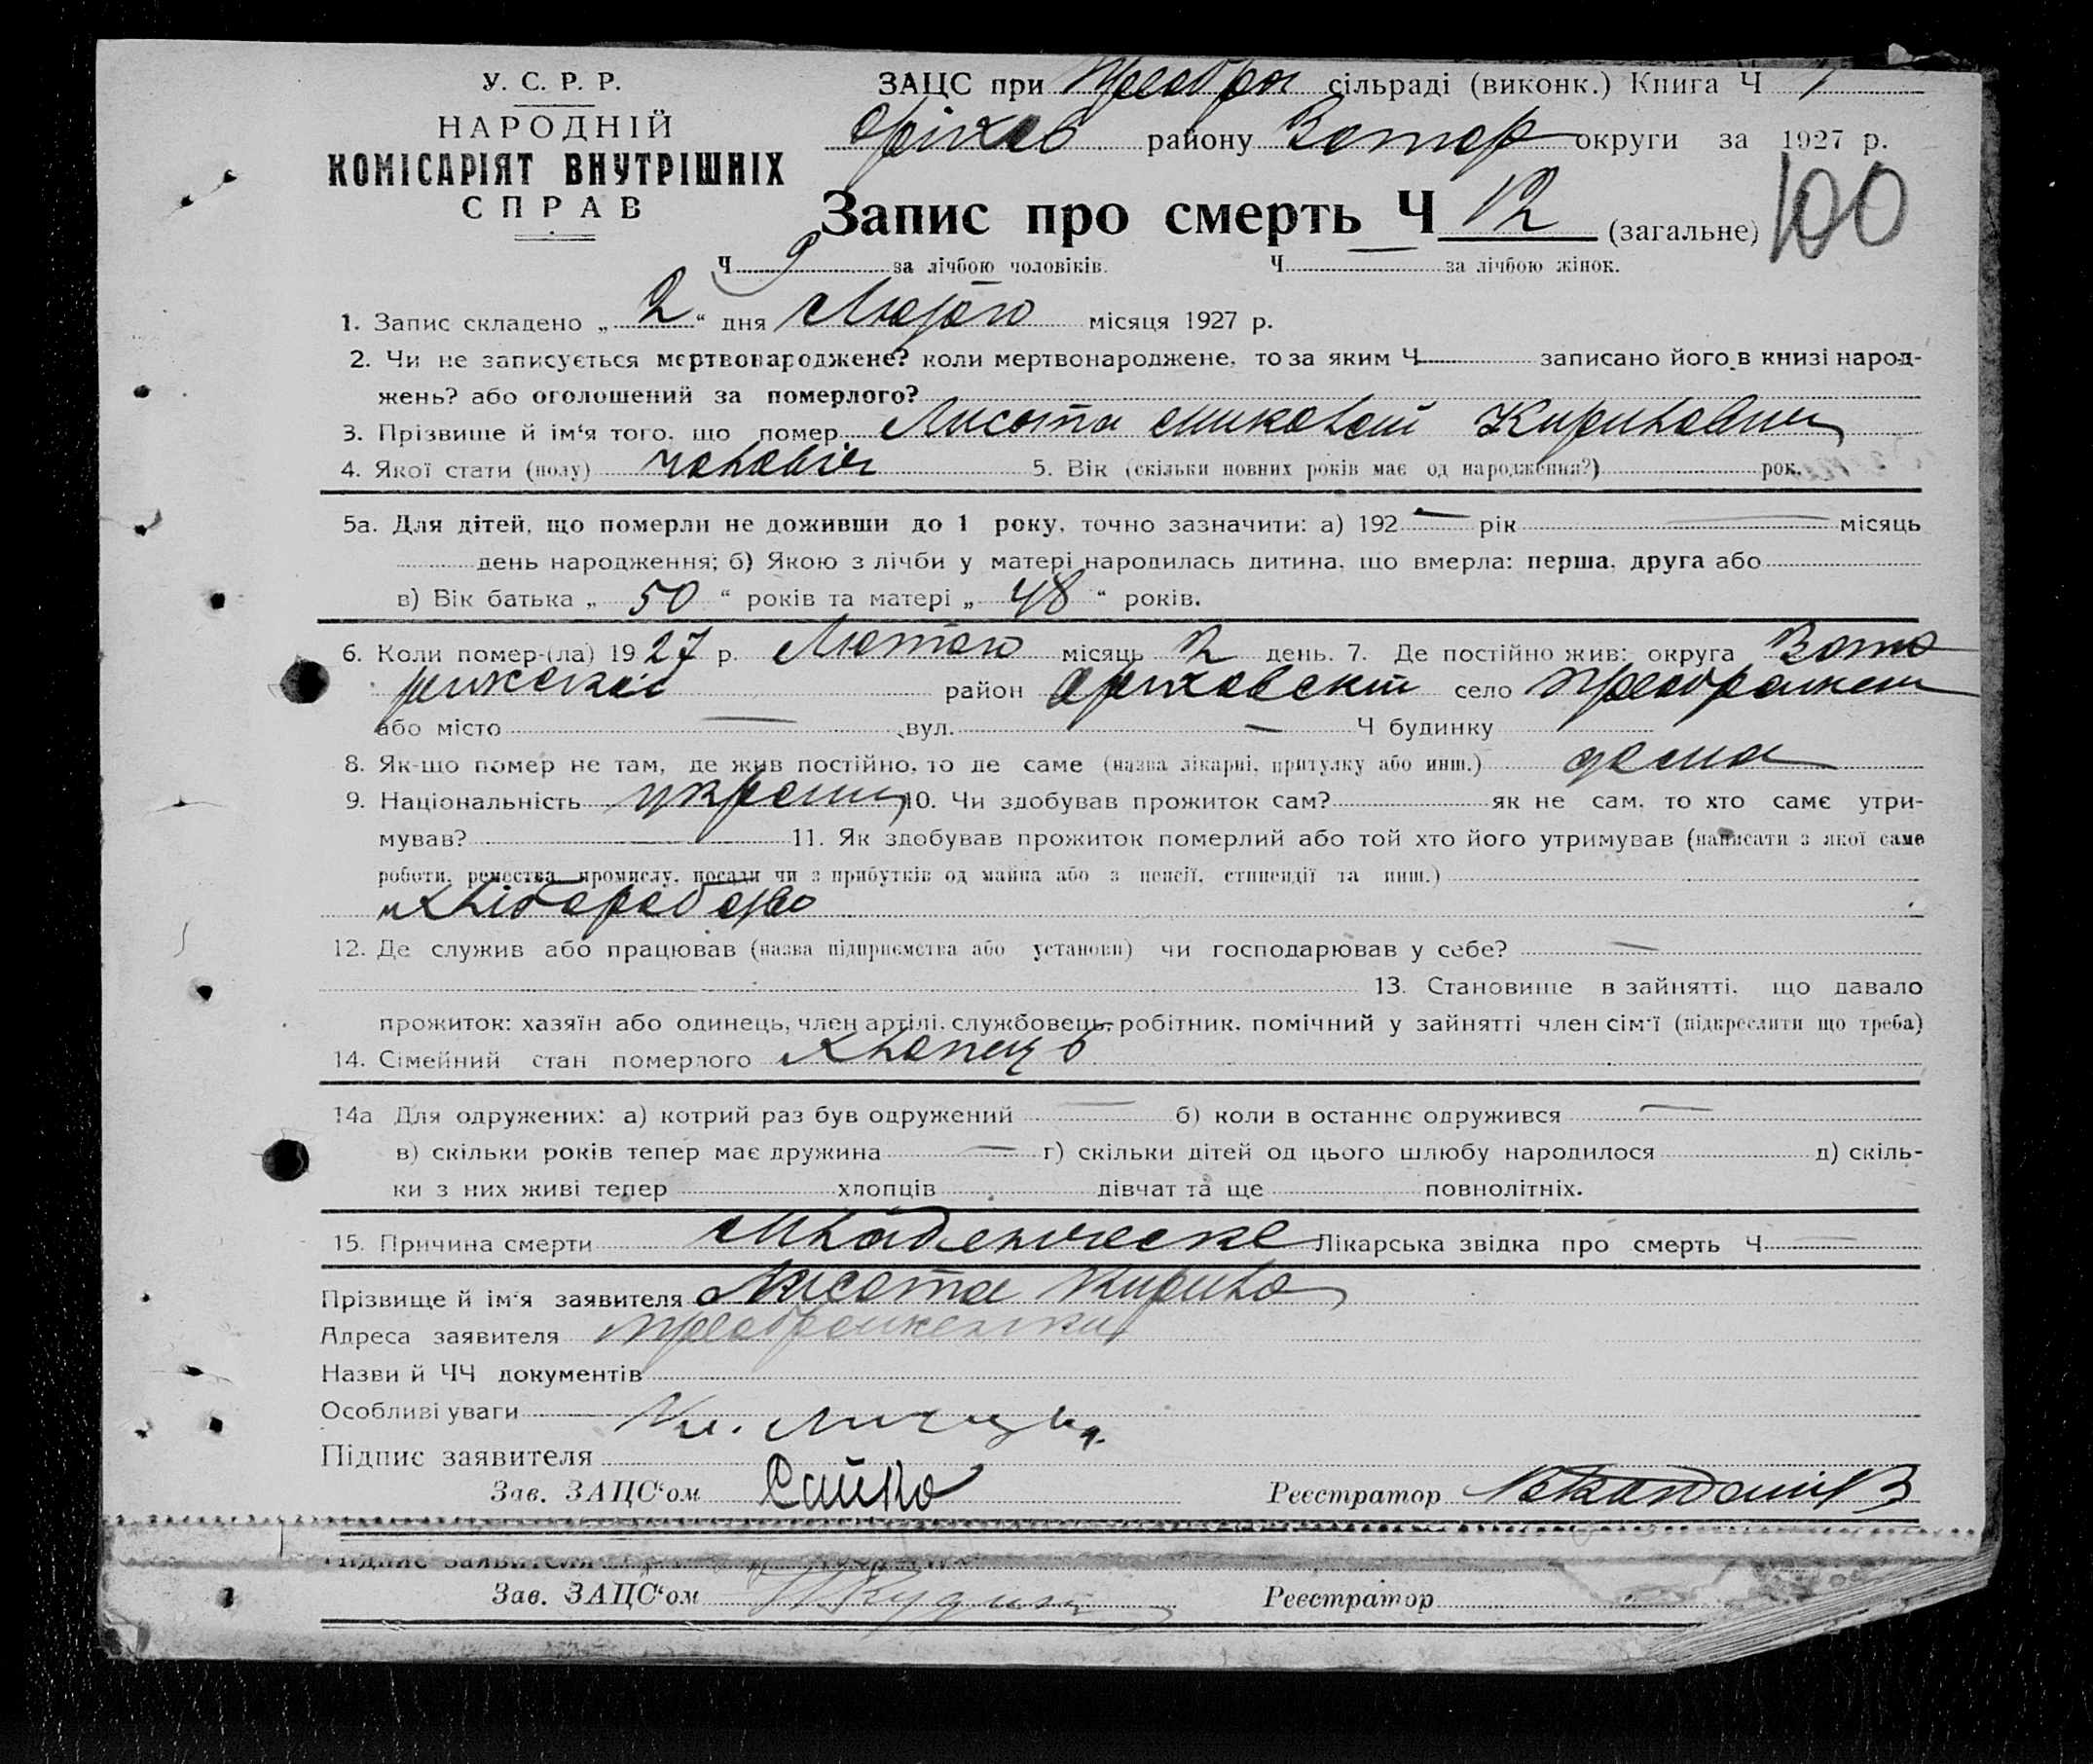 У. С. Р. Р.
НАРОДНІЙ
КОМІСАРІЯТ ВНУТРІШНІХ
СПРАВ
ЗАЦС при Преображ сільраді (виконк.) Книга Ч 1
Оріхів району Запор округи за 1927 р.
Запис про смерть Ч 12 (загальне) 100
Ч 9 за лічбою чоловіків. Ч — за лічбою жінок.
1. Запис складено „ 2 “ дня Лютого місяця 1927 р.
2. Чи не записується мертвонароджене? коли мертвонароджене, то за яким Ч записано його в книзі народ-
жень? або оголошений за померлого?
3. Прізвище й ім‘я того, що помер Лисота Миколай Кирилович
4. Якої стати (полу) чоловіч 5. Вік (скільки повних років має од народження?) рок.
5а. Для дітей, що померли не доживши до 1 року, точно зазначити: а) 192 — рік — місяць
день народження; б) Якою з лічби у матері народилась дитина, що вмерла: перша, друга або
в) Вік батька „ 50 “ років та матері „ 48 “ років.
6. Коли помер-(ла) 1927 р. Лютого місяць 2 день. 7. Де постійно жив: округа Запо
ріжської район Оріховский село Преображен
або місто — вул. — Ч будинку
8. Як-що помер не там, де жив постійно, то де саме (назва лікарні, притулку або инш.) дома
9. Національність україн 10. Чи здобував прожиток сам? як не сам, то хто саме утри-
мував? 11. Як здобував прожиток померлий або той хто його утримував (написати з якої саме
роботи, ремества, промислу, посади чи з прибутків од майна або з пенсії, стипендії та инш.)
12. Де служив або працював (назва підприємства або установи) чи господарював у себе? —
13. Становище в зайнятті, що давало
прожиток: хазяїн або одинець, член артілі, службовець, робітник, помічний у зайнятті член сім‘ї (підкреслити що треба)
14. Сімейний стан померлого Хлопець
14а Для одружених: а) котрий раз був одружений — б) коли в останнє одружився —
в) скільки років тепер має дружина — г) скільки дітей од цього шлюбу народилося д) скіль-
ки з них живі тепер хлопців дівчат та ще повнолітніх.
15. Причина смерти Младенческе Лікарська звідка про смерть Ч —
Прізвище й ім‘я заявителя Лисота Кирило
Адреса заявителя Преображенки
Назви й ЧЧ документів
Особливі уваги
Підпис заявителя
Зав. ЗАЦС‘ом Сайко Реєстратор
Підпис заявителя
Зав. ЗАЦС‘ом Реєстратор